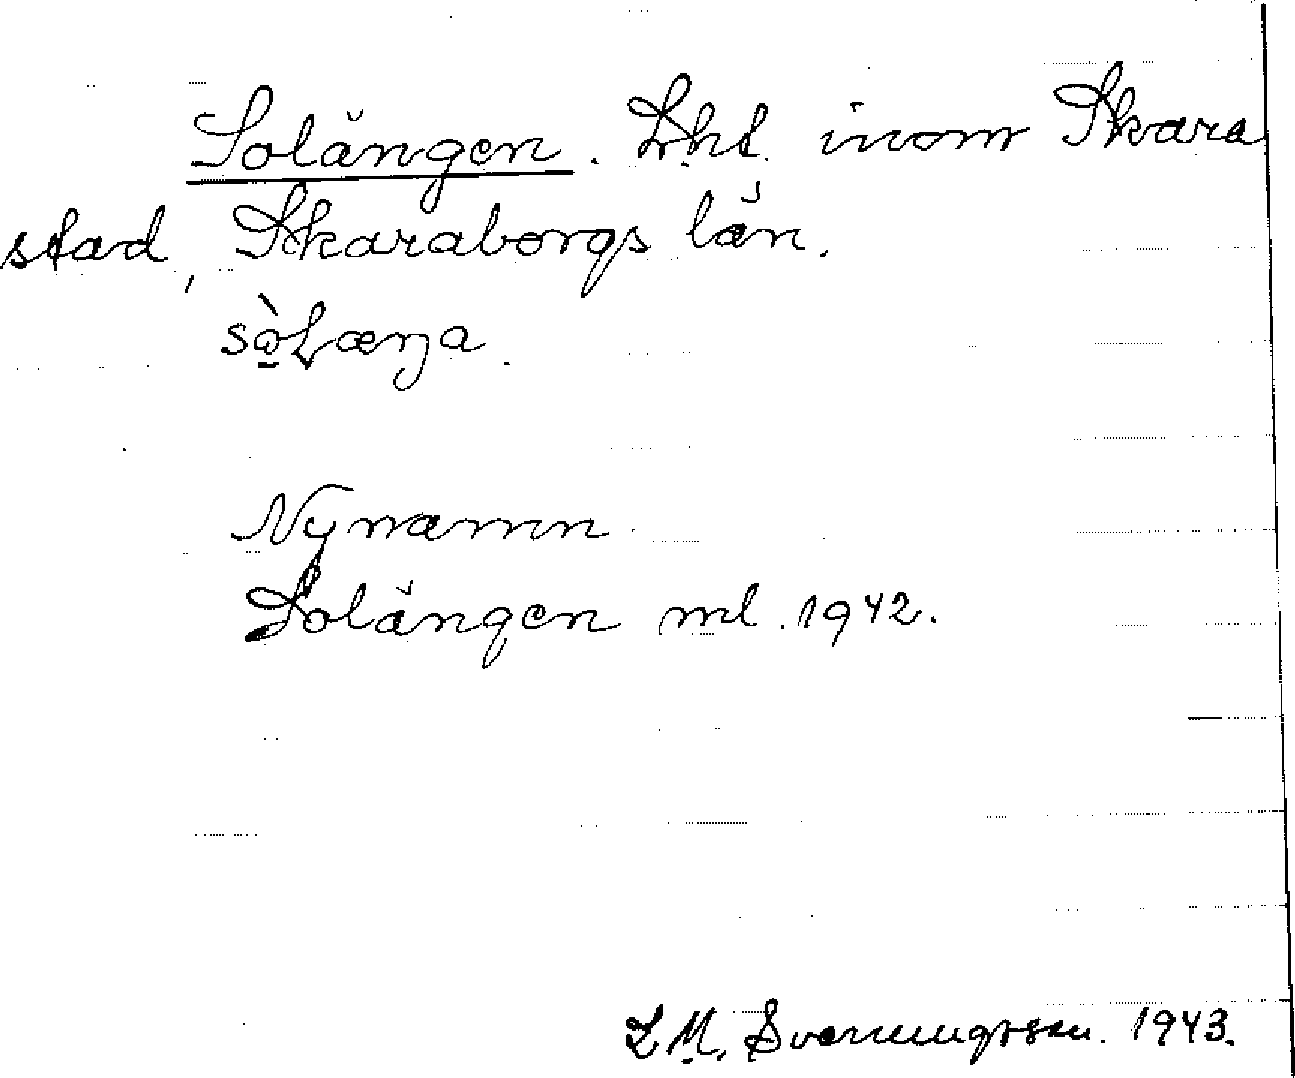 Solängen. Lht. inom Skara
stad, Skaraborgs län.
sòLæŋa.
Nynamn
Solängen ml. 1942.
Svenningsson. 1943.